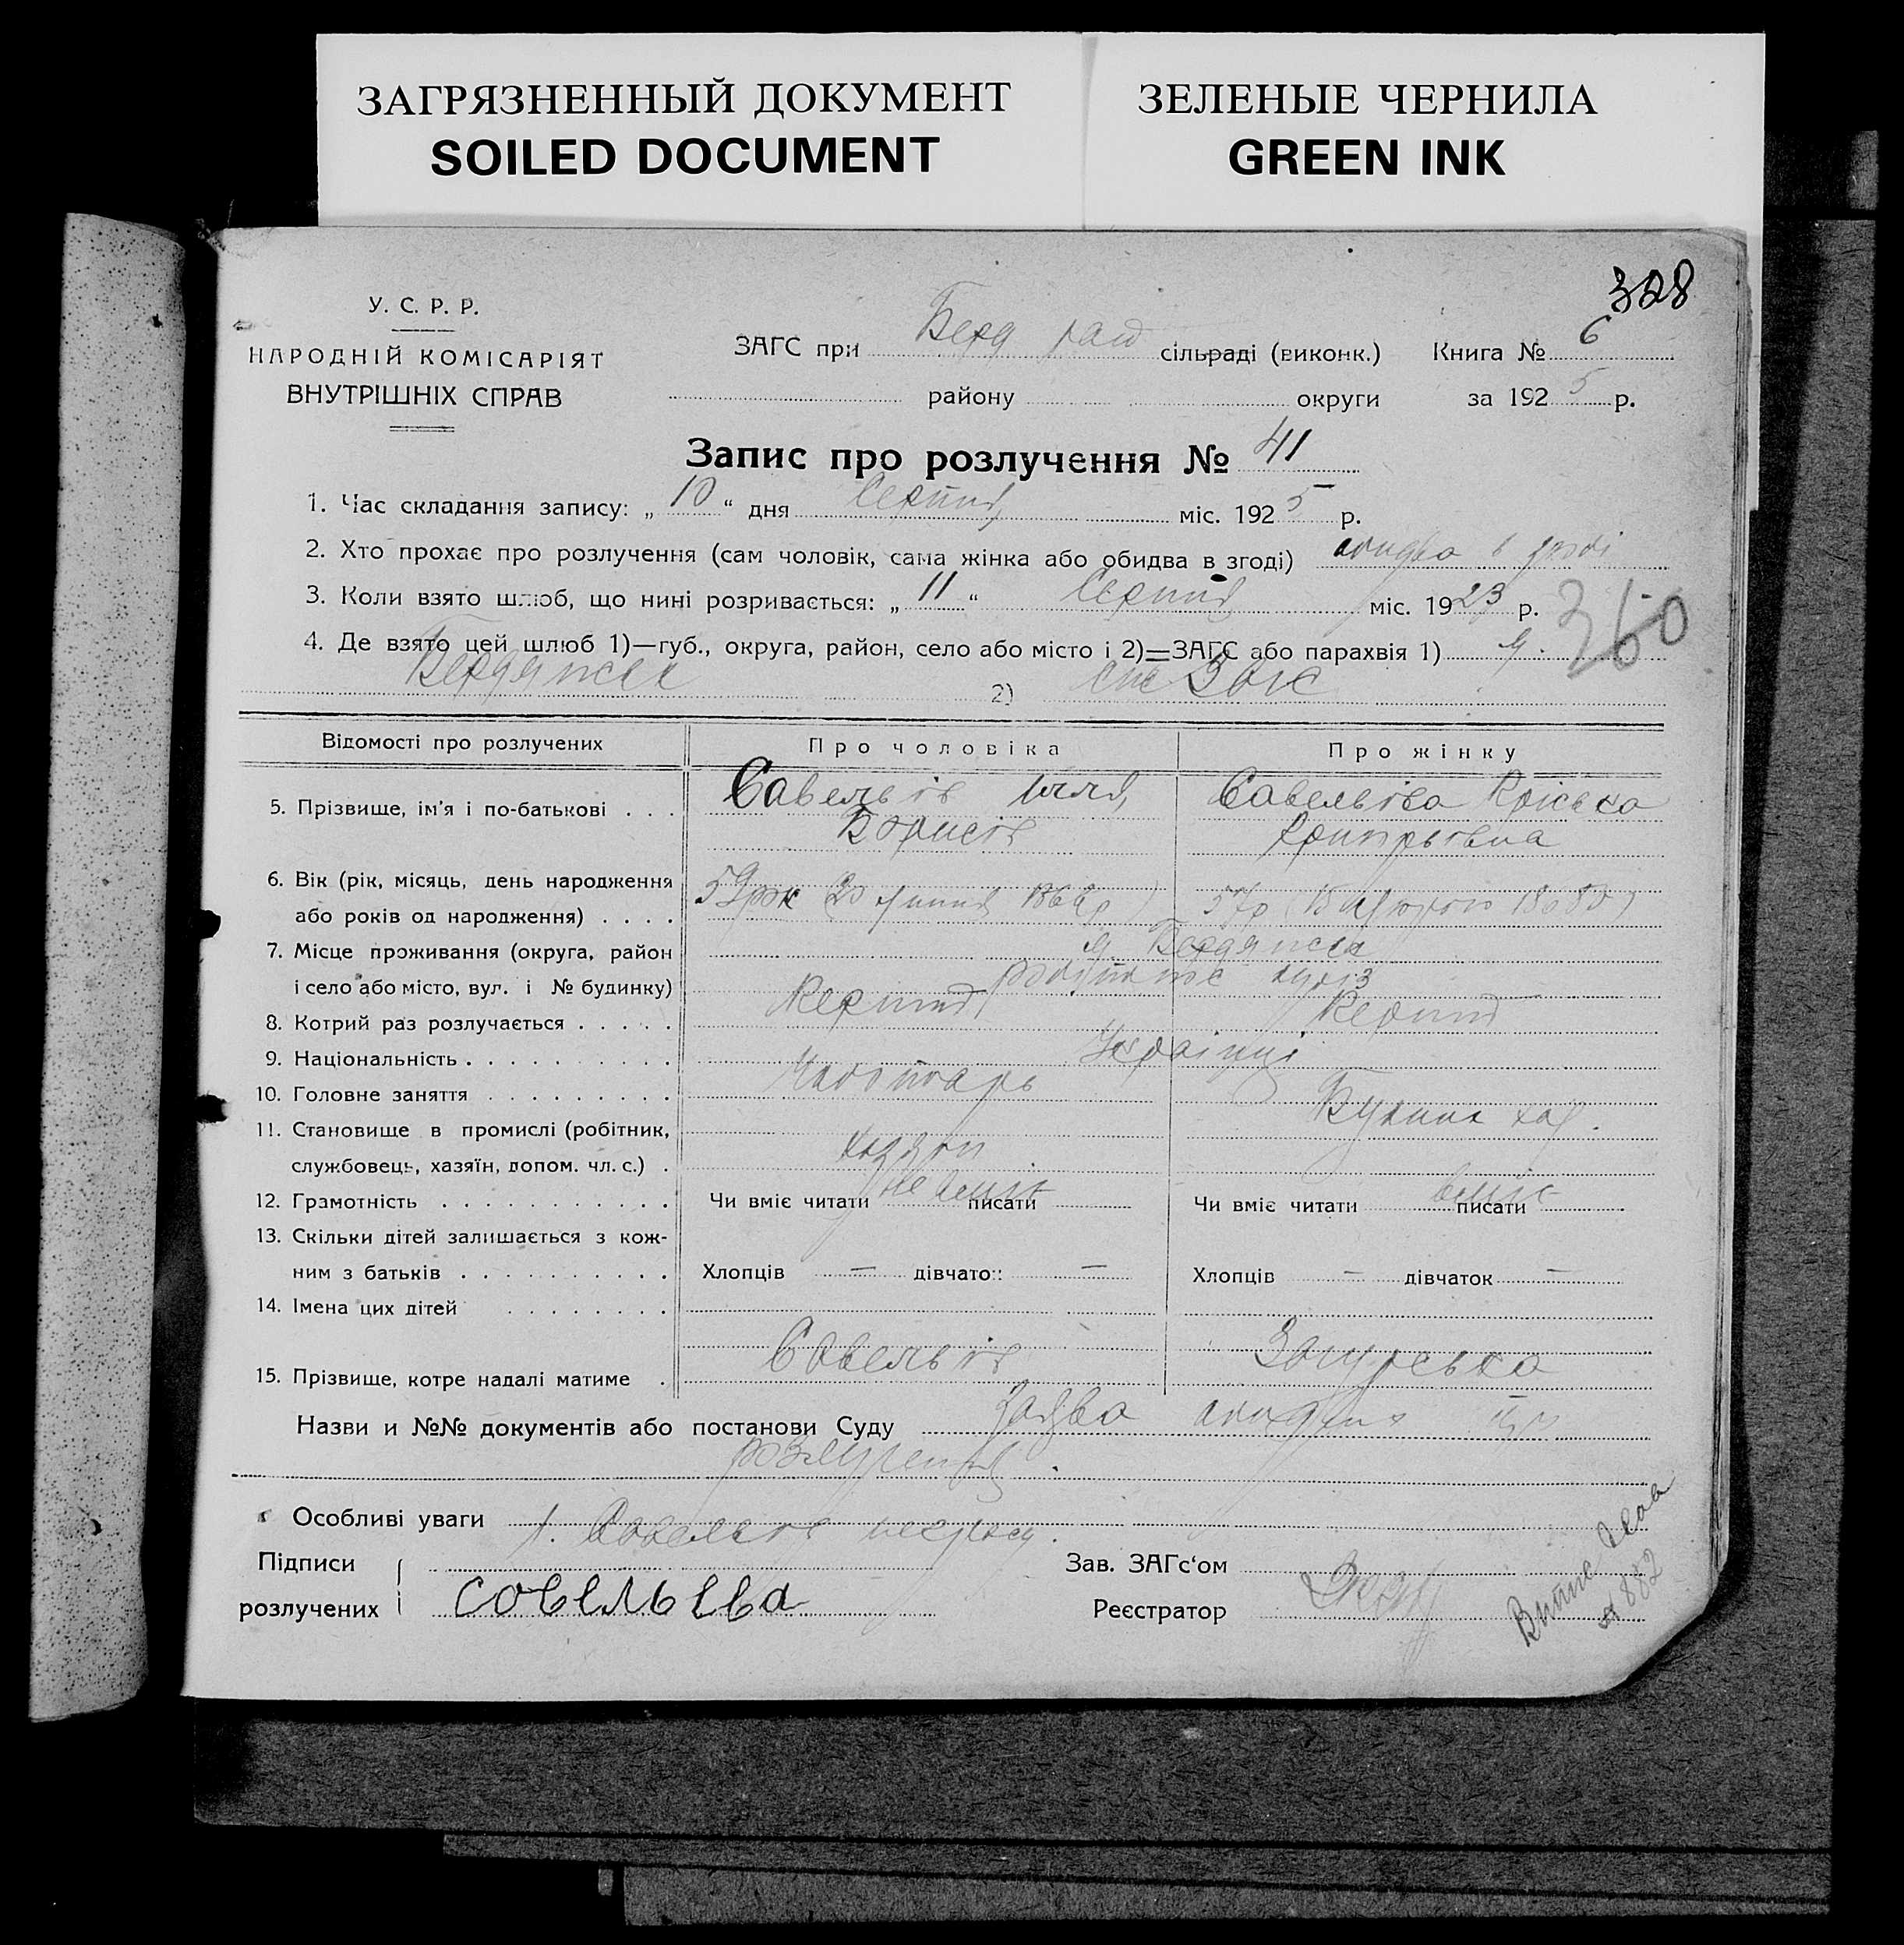 ЗАГРЯЗНЕННЫЙ ДОКУМЕНТ
SOILED DOCUMENT
ЗЕЛЕНЫЕ ЧЕРНИЛА
GREEN INK
328
У. С. Р. Р.
НАРОДНІЙ КОМІСАРІЯТ
ВНУТРІШНІХ СПРАВ
ЗАГС при Берд рай сільраді (виконк.) Книга № 6
району округи за 1925 р.
Запис про розлучення № 41
1. Час складання запису: „10“ дня Серпня міс. 1925 р.
2. Хто прохає про розлучення (сам чоловік, сама жінка або обидва в згоді) обидва в згоді
3. Коли взято шлюб, що нині розривається: „11“ Серпня міс. 1923 р.
360
4. Де взято цей шлюб 1)—губ., округа, район, село або місто і 2)=ЗАГС або парахвія 1) м.
Бердянськ 2) ЗАГС
Відомості про розлучених Про чоловіка Про жінку
5. Прізвище, ім'я і по-батькові . . . Савельїв Ілля Савельєва
Борисів Дмитрівна
6. Вік (рік, місяць, день народження
або років од народження) . . . . 59 рок (20 липня 1866р) 57р (15 лютого 1868р)
7. Місце проживання (округа, район м. Бердянськ
і село або місто, вул. і № будинку)
8. Котрий раз розлучається . . . . . Перший Перший
9. Національність . . . . . . . . . . Українці
10. Головне заняття . . . . . . . . . Чоботарь
11. Становище в промислі (робітник,
службовець, хазяїн, допом. чл. с.) . хазяїн
12. Грамотність . . . . . . . . . . . Чи вміє читати не вміє писати Чи вміє читати вміє писати
13. Скільки дітей залишається з кож-
ним з батьків . . . . . . . . . . Хлопців — дівчаток — Хлопців — дівчаток —
14. Імена цих дітей . . . . . . . .
15. Прізвище, котре надалі матиме . Савельїв
Назви и №№ документів або постанови Суду Заява про
розлучення.
Особливі уваги г. Савельїв неграм.
Підписи
розлучених Совельева
Зав. ЗАГс'ом
Реєстратор
Витяг
№ 882